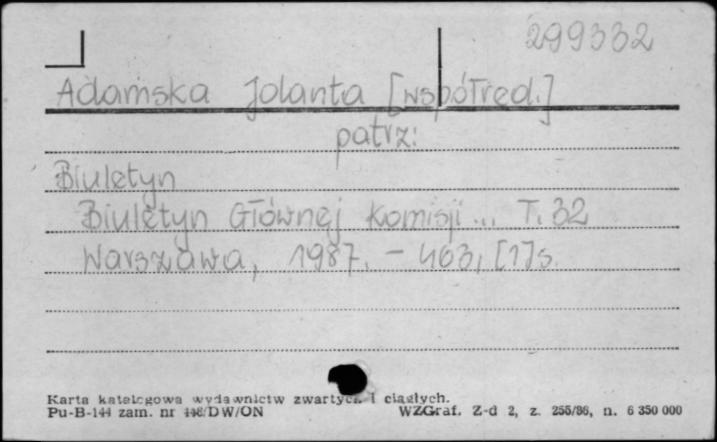 299332
Adamska Jolanta [współred.]
patrz:
Biuletyn
Biuletyn Głównej Komisji... T. 32
Warszawa, 1987. – 463, [1] s.
Karta katalogowa wydawnictw zwartych i ciągłych.
Pu-B-144 zam. nr 448/DW/ON WZGraf. Z-d 2, z. 255/86, n. 6 350 000